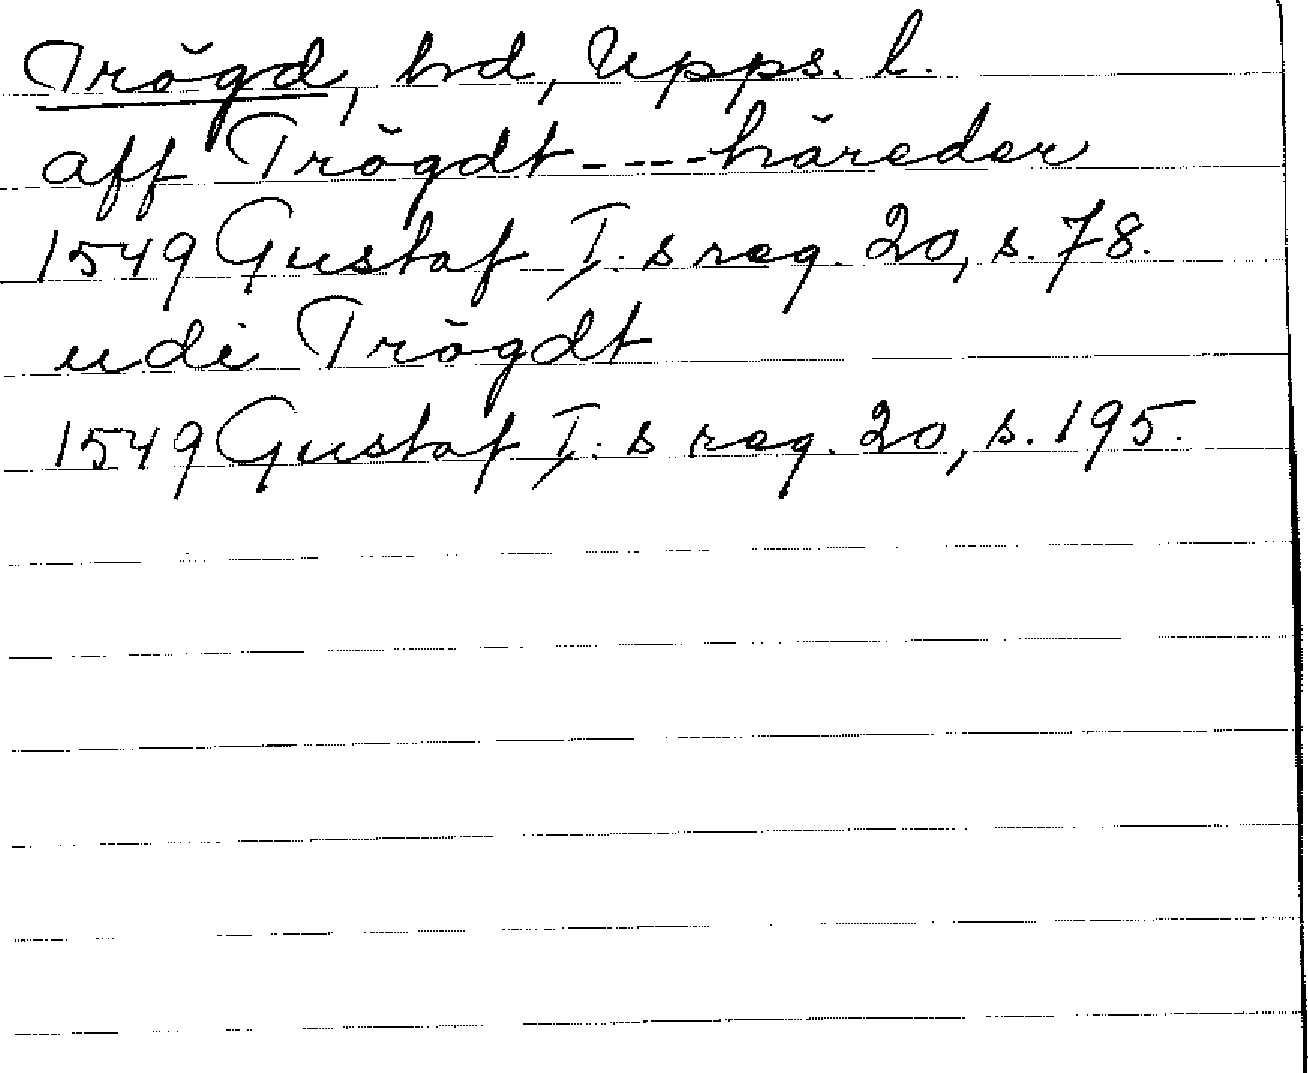 Trögd, hd, Upps. l.
aff Trögdt ---- häreder
1549 Gustaf I:s reg. 20, s. 78.
udi Trögdt
1549 Gustaf I:s reg. 20, s. 195.